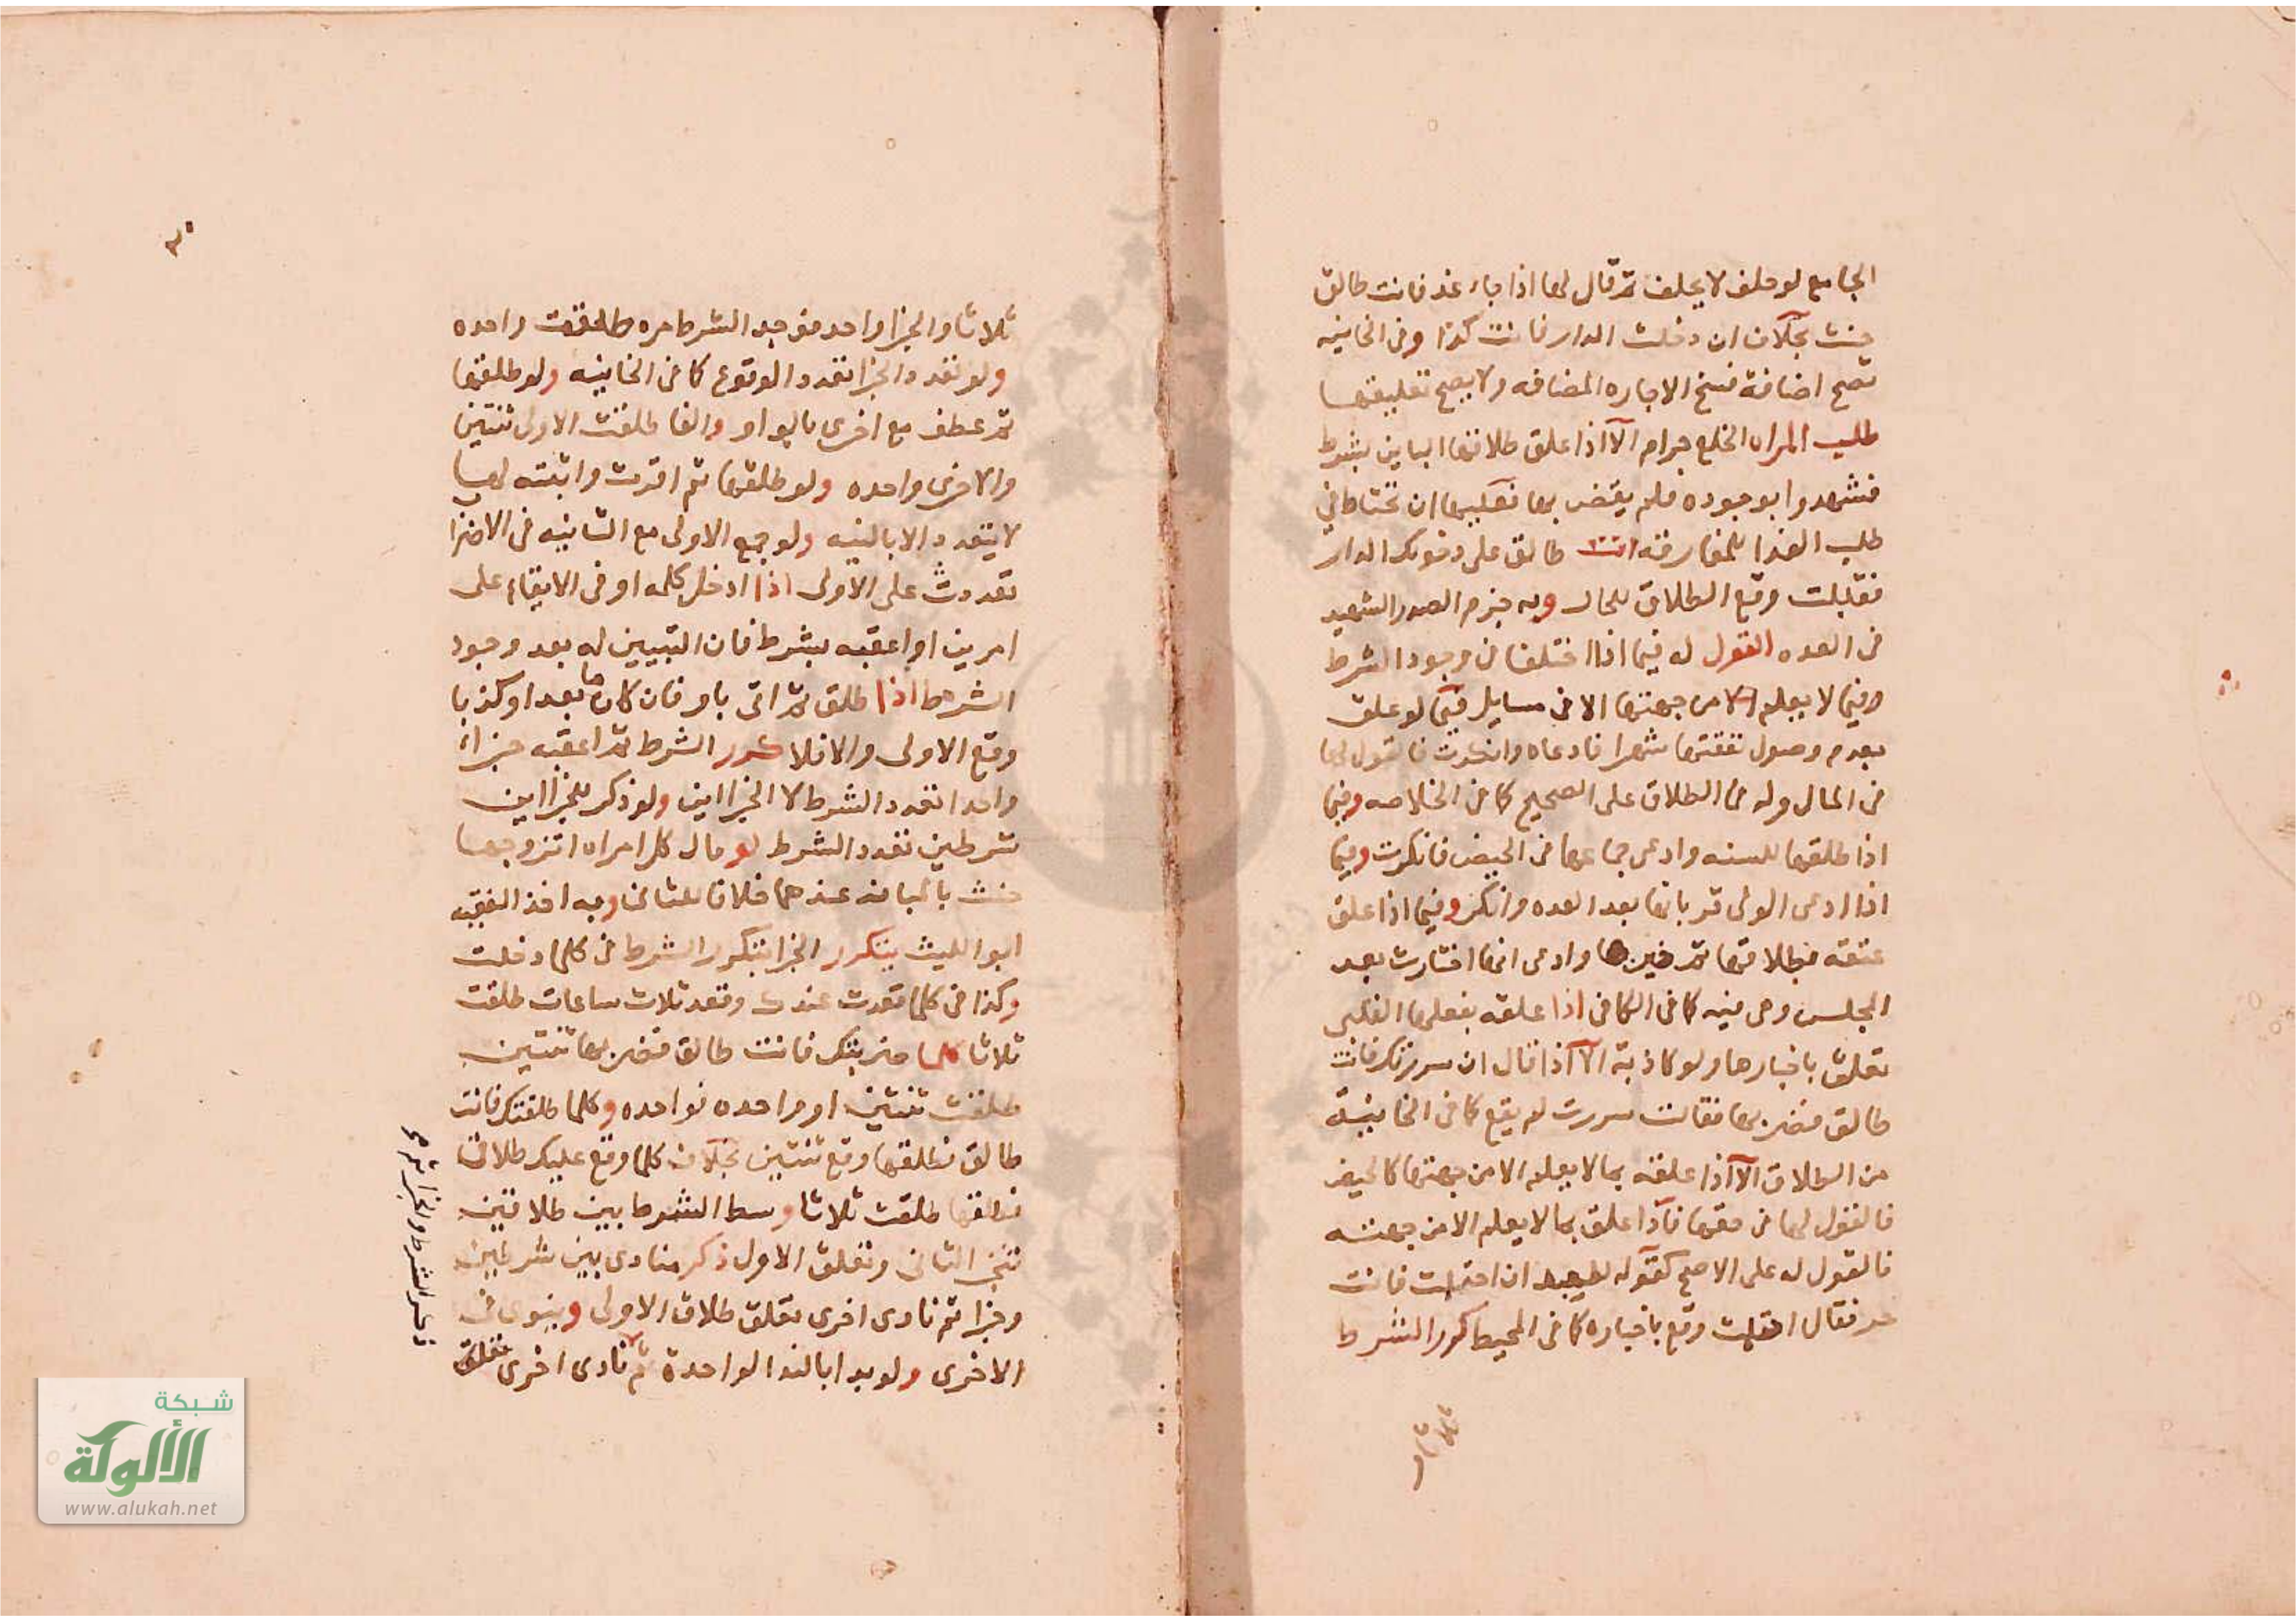 الجامع لو حلف لا يحلف ثم قال لها اذا جاء غد فانت طالق
حنث بخلاف ان دخلت الدار فانت كذا وفى الخانيه
تصح اضافة فسخ الاجاره المضافه ولا يصح تعليقها
طلب المراه الخلع حرام الا اذا علق طلاقها الباين بشرط
فشهدوا بوجوده فلم يقض بها فعليها ان تحتاط فى
طلب الفدا للمفارقه انت طالق على دخولك الدار
فقبلت وقع الطلاق للحال وبه جزم الصدر الشهيد
فى العده القول له فيما اذا اختلفا فى وجود الشرط
وفيما لا يعلم الا من جهتها الا فى مسايل فيما لو علق
بعدم وصول نفقتها شهرا فادعاه وانكرت فالقول لها
فى المال وله فى الطلاق على الصحيح كما فى الخلاصه وفيما
اذا طلقها للسنه وادعى جماعها فى الحيض فانكرت وفيما
اذا ادعى المولى قربانها بعد العده وانكر وفيما اذا علق
عتقه بطلاقها ثم خيرها وادعى انها اختارت بعد
المجلس وهى فيه كما فى الكافى اذا علقه بفعلها القلبى
تعلق باخبارها ولو كاذبة الا اذا قال ان سررتك فانت
طالق فضربها فقالت سررت لم يقع كما فى الخانية
من الطلاق الا اذا علقه بما لا يعلم الا من جهتها كالحيض
فالقول لها فى حقها فاذا علق بما لا يعلم الا من جهته
فالقول له على الاصح كقوله لعبده ان احتلمت فانت
حر فقال احتلمت وقع باخباره كما فى المحيط كرر الشرط
ثلاثا و
٣٠
ثلاثا والجزا واحد فوجد الشرط مره طلقت واحده
ولو تعدد الجزا تعدد الوقوع كما فى الخانيه ولو طلقها
ثم عطف مع اخرى بالواو والفا طلقت الاولى ثنتين
والاخرى واحده ولو طلقها ثم اقرت واثبته لها
لا يتعدد الا بالنيه ولو جمع الاولى مع الثانيه فى الاضرا
تعددت على الاولى اذا ادخل كلمه او فى الايقاع على
امرين او اعقبه بشرط فان التبيين له بعد وجود
الشرط اذا طلق ثم اتى باو فان كان ما بعد او كذبا
وقع الاولى والا فلا كرر الشرط ثم اعقبه جزاء
واحدا تعدد الشرط لا الجزا اين ولو ذكر للجزا اين
شرطين تعدد الشرط لو قال كل امراه اتزوجها
حنث بالمبانه عندهما خلافا للثانى وبه اخذ الفقيه
ابو الليث يتكرر الجزا بتكرر الشرط فى كلما دخلت
وكذا فى كلما قعدت عندك وقعد ثلاث ساعات طلقت
ثلاثا كلما ضربتك فانت طالق فضربها ثنتين
طلقت ثنتين او واحده فواحده وكلما طلقتك فانت
طالق فطلقها وقع ثنتين بخلاف كلما وقع عليك طلاقى
فطلقها طلقت ثلاثا وسط الشرط بين طلاقين
تنجز الثانى وتعلق الاول ذكر منادى بين شرطين
وجزا ثم نادى اخرى تعلق طلاق الاولى وينوى فى
الاخرى ولو بدا بالندا لواحدة ثم نادى اخرى تعلق
ذكر الشرط والجزا ثم
شبكة
الألوكة
www.alukah.net